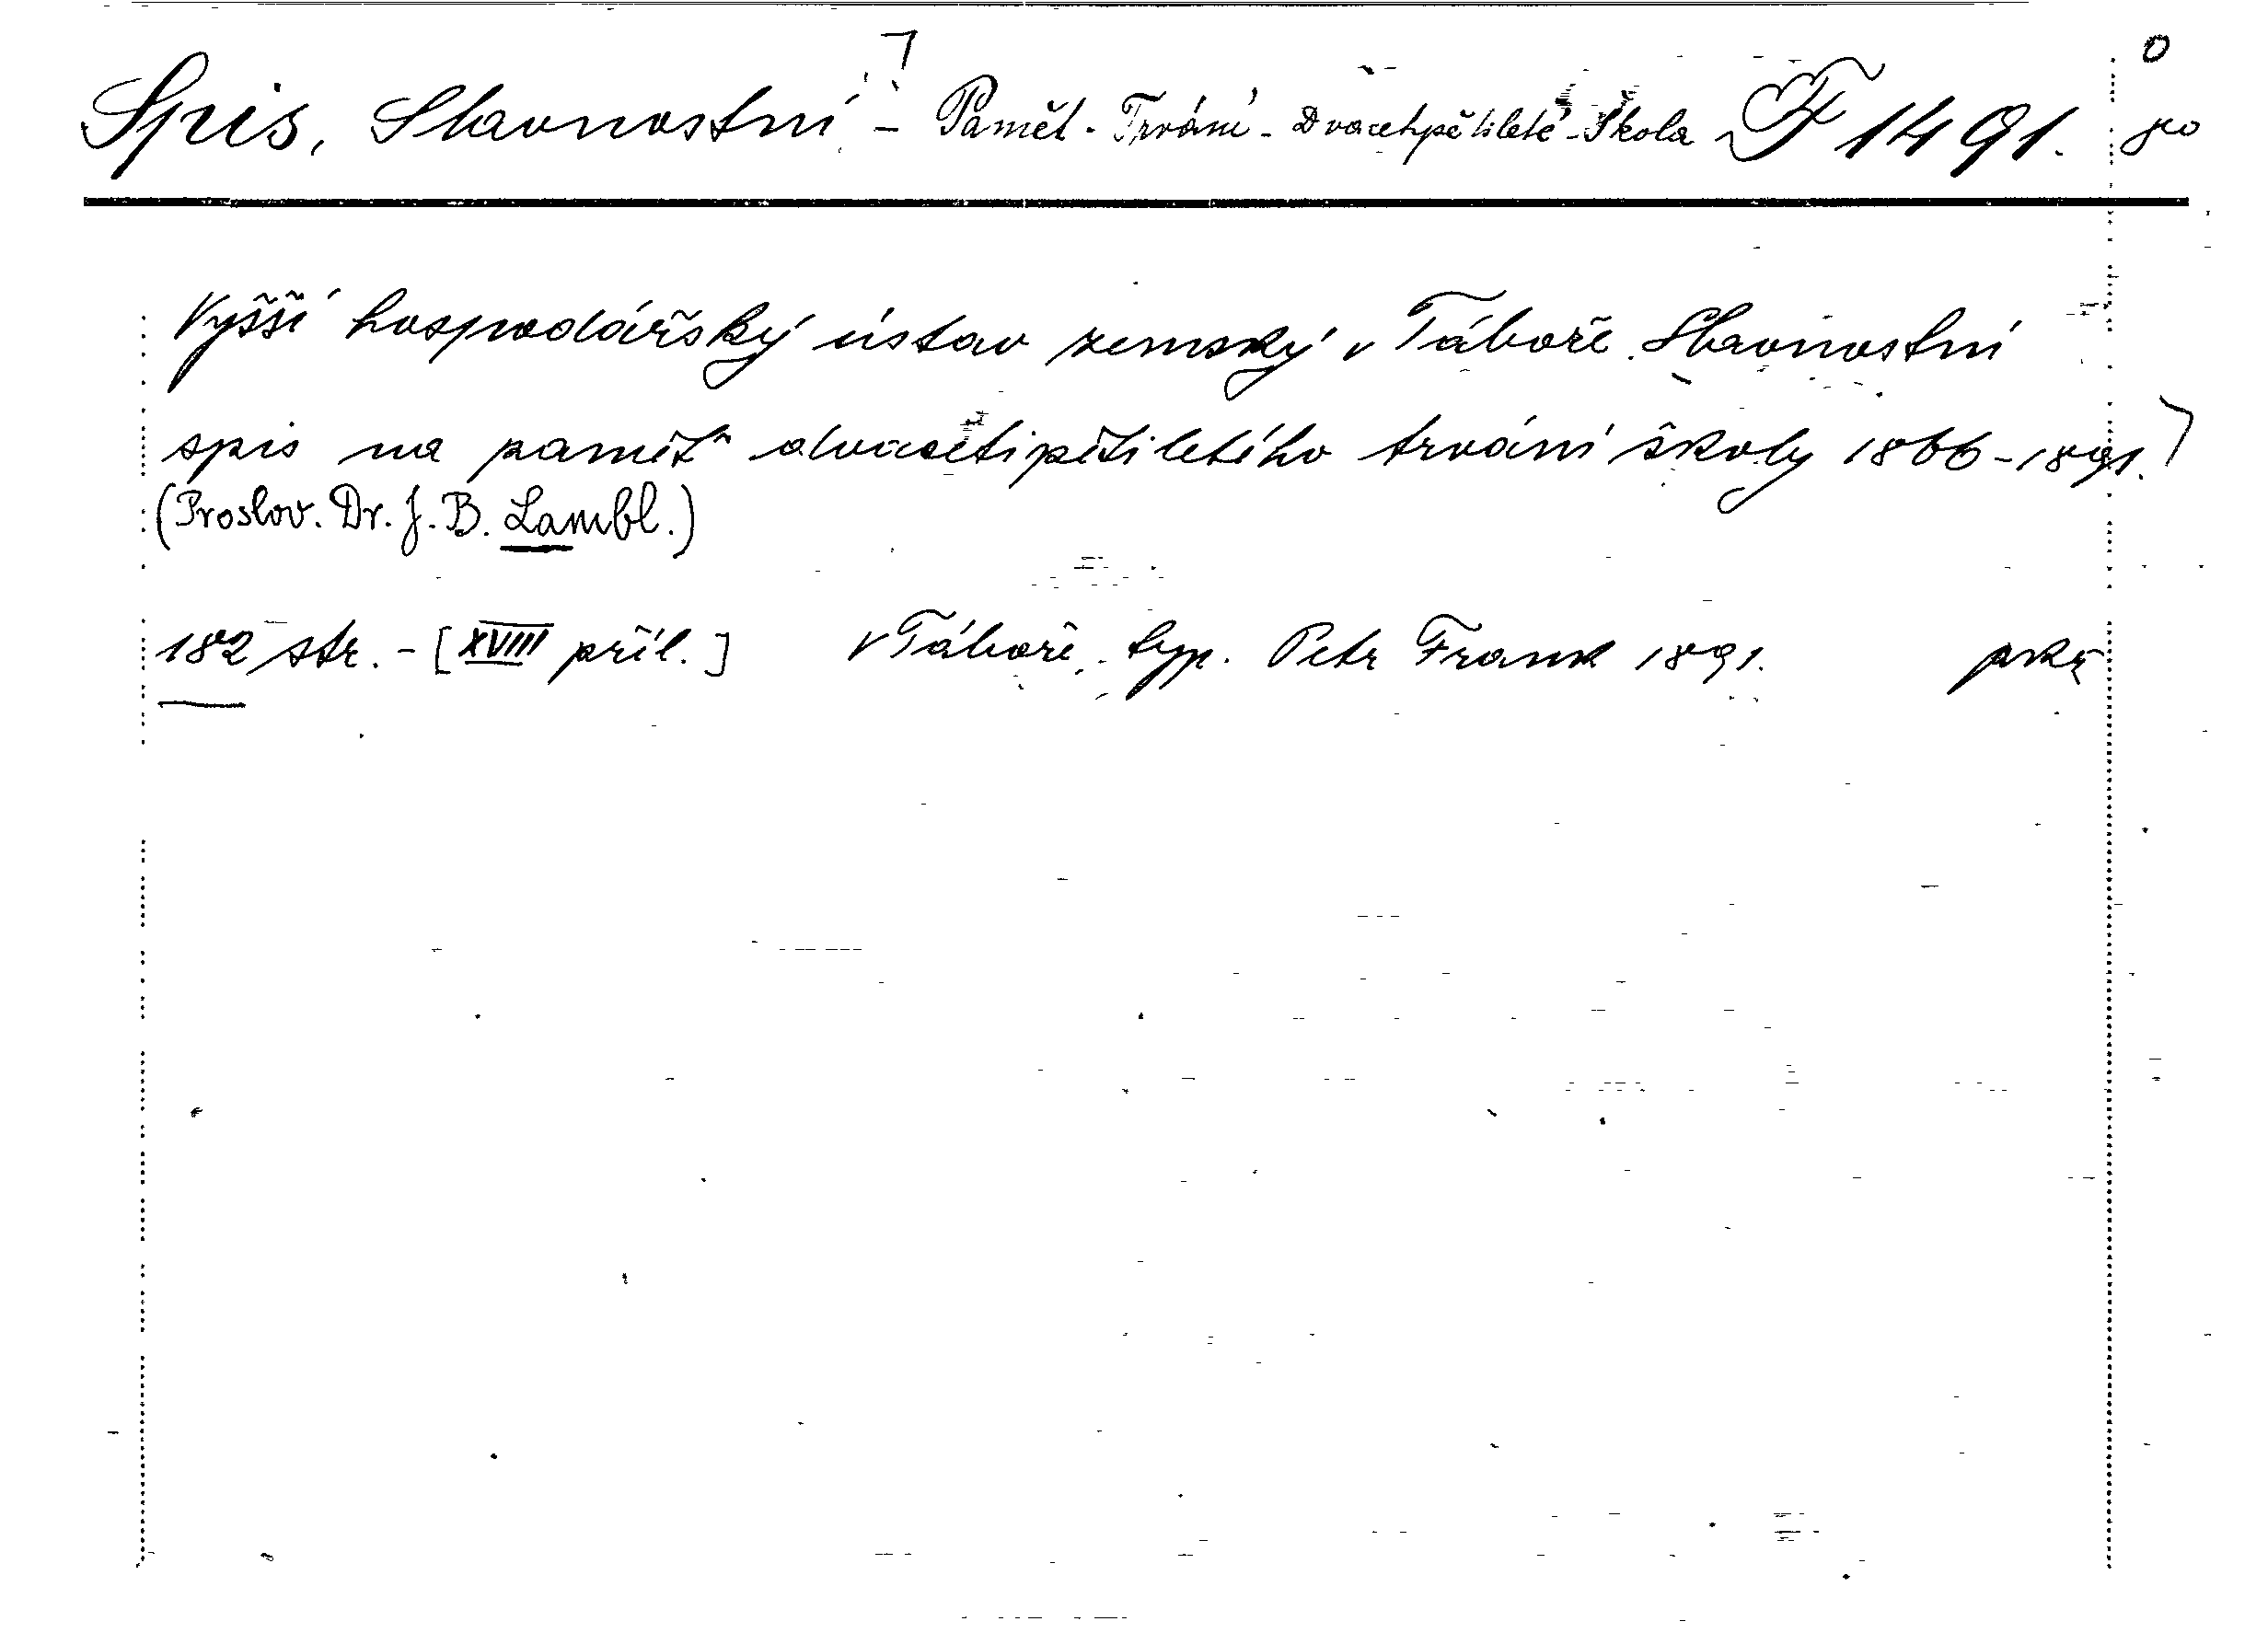 Spis, Slavnostní - Pamět - Trvání - Dvacetipětileté - Škola F 1491. 8°
Vyšší hospodářský ústav zemský v Táboře. Slavnostní
spis na paměť dvacetipětiletého trvání školy 1866-1891.
(Proslov. Dr. J. B. Lambl.)
182 str. - [XVIII příl.] V Táboře, typ. Petr Frank 1891.